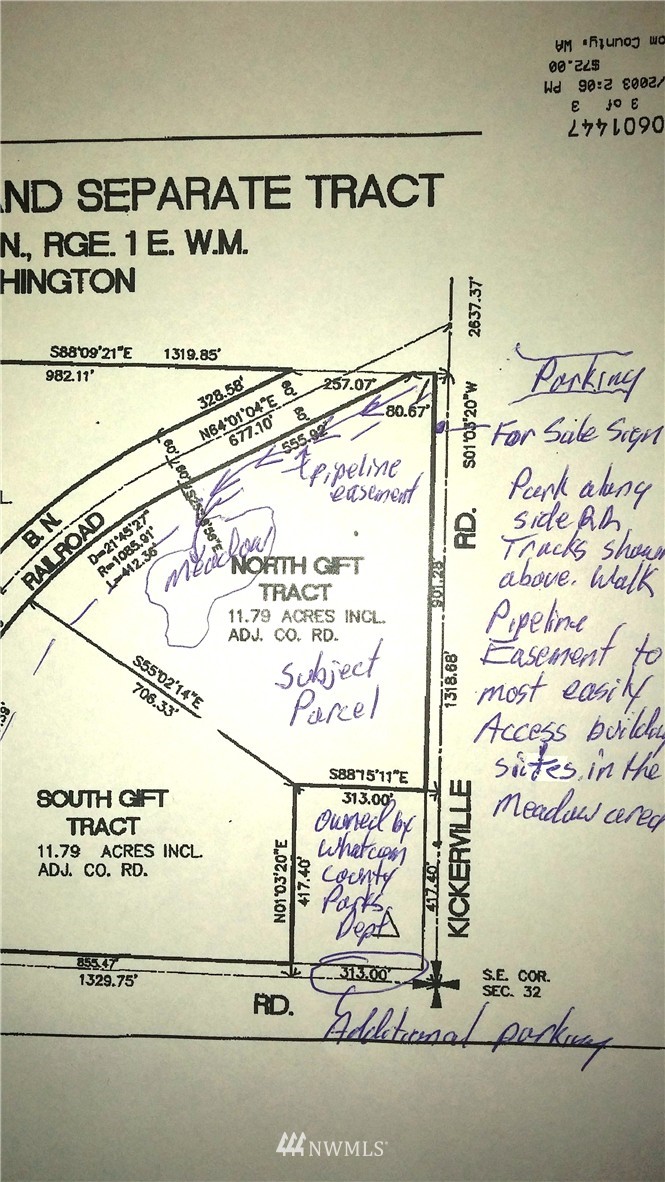 om County, WA
$72.00
/2003 2:06 PM
3 of 3
0601447
AND SEPARATE TRACT
N., RGE. 1 E. W.M.
HINGTON
S88°09'21"E 1319.85'
982.11'
328.58'
N64°01'04"E
677.10'
257.07'
555.92'
80.67'
60'
60'
60'
60'
2637.37'
S01°03'20"W
B.N.
RAILROAD
D=21°45'27"
R=1085.91'
L=412.36'
pipeline
easement
Meadow
NORTH GIFT
TRACT
11.79 ACRES INCL.
ADJ. CO. RD.
Subject
Parcel
901.28'
1318.68'
RD.
KICKERVILLE
S55°02'14"E
706.33'
S88°15'11"E
313.00'
SOUTH GIFT
TRACT
11.79 ACRES INCL.
ADJ. CO. RD.
N01°03'20"E
417.40'
owned by
Whatcom
County
Parks
Dept
417.40'
855.47'
1329.75'
313.00'
RD.
S.E. COR.
SEC. 32
Additional parking
Parking
For Sale Sign
Park along
side RR
Tracks shown
above. Walk
Pipeline
Easement to
most easily
Access building
sites in the
Meadow area
NWMLS